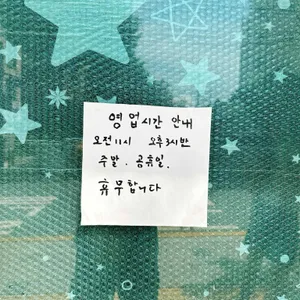 영업시간 안내
오전11시 오후3시반
주말. 공휴일.
휴무합니다